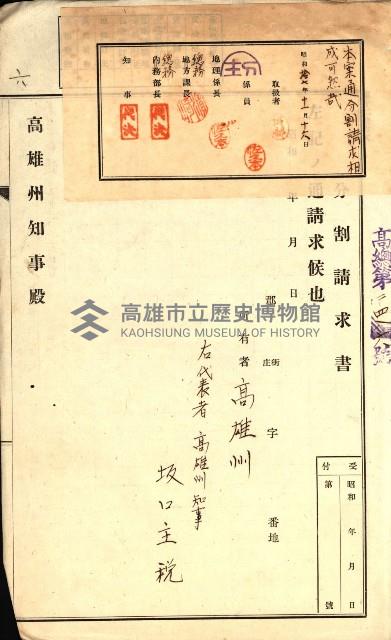 本案通分割請求相
成可然哉
昭和拾七年十一月十六日
取扱者
係員
地理係長
地方課長
總務
內務部長
總務
知事
代決
代決
高總第
四
號
受付
昭和 年 月 日
第 號
分割請求書
左記ノ通請求候也
年 月 日
郡 街庄 字 番地
所有者 高雄州
右代表者 高雄州知事
坂口主稅
高雄州知事殿
六
高雄市立歷史博物館
KAOHSIUNG MUSEUM OF HISTORY